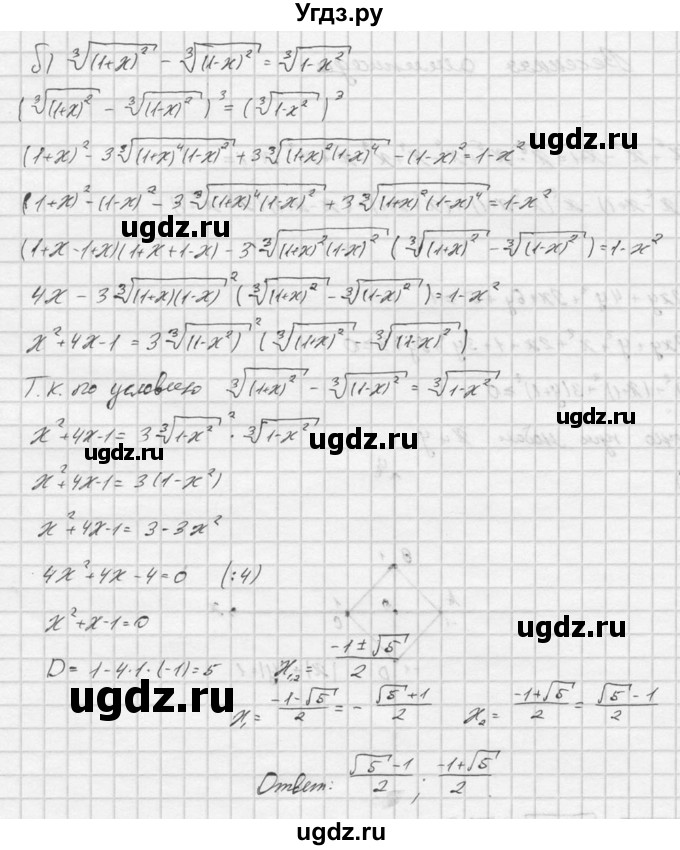 Угдз.ру
б) ∛(1+x)² − ∛(1−x)² = ∛1−x²
(∛(1+x)² − ∛(1−x)²)³ = (∛1−x²)³
(1+x)² − 3∛(1+x)⁴(1−x)² + 3∛(1+x)²(1−x)⁴ − (1−x)² = 1−x²
(1+x)² − (1−x)² − 3∛(1+x)⁴(1−x)² + 3∛(1+x)²(1−x)⁴ = 1−x²
ugdz.ru ugdz.ru
(1+x−1+x)(1+x+1−x) − 3∛(1+x)²(1−x)² (∛(1+x)² − ∛(1−x)²) = 1−x²
4x − 3∛(1+x)(1−x)² (∛(1+x)² − ∛(1−x)²) = 1−x²
x²+4x−1 = 3∛(1−x²)² (∛(1+x)² − ∛(1−x)²)
Т.к. по условию ∛(1+x)² − ∛(1−x)² = ∛1−x²
ugdz.ru
x²+4x−1 = 3∛1−x²² · ∛1−x²
ugdz.ru ugdz.ru
x²+4x−1 = 3(1−x²)
x²+4x−1 = 3−3x²
4x²+4x−4=0 (:4)
x²+x−1=0
ugdz.ru
D = 1−4·1·(−1)=5 x₁,₂ = (−1±√5)/2
ugdz.ru ugdz.ru
x₁ = (−1−√5)/2 = −(√5+1)/2 x₂ = (−1+√5)/2 = (√5−1)/2
Ответ: (√5−1)/2 ; (−1+√5)/2
ugdz.ru
ugdz.ru